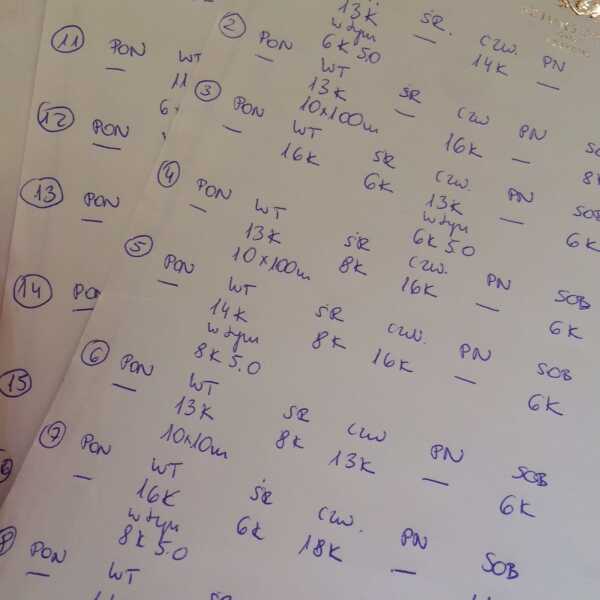 11 PON WT
—
11
12 PON
—
13 PON
—
14 PON
—
15
13K ŚR. CZW. PN
w tym — 14K —
6K 5.0
2 PON WT ŚR CZW PN
— 13K — 16K — 8K
10x100m
3 PON WT ŚR CZW. PN SOB
— 16K 6K 13K — 6K
w tym
6K 5.0
4 PON WT ŚR CZW. PN SOB
— 13K 8K 16K — 6K
10x100m
5 PON WT ŚR CZW. PN SOB
— 14K 8K 16K — 6K
w tym
8K 5.0
6 PON WT ŚR CZW PN SOB
— 13K 8K 13K — 6K
10x10m
7 PON WT ŚR CZW. PN SOB
— 16K 6K 18K —
w tym
8K 5.0
8 PON WT
—